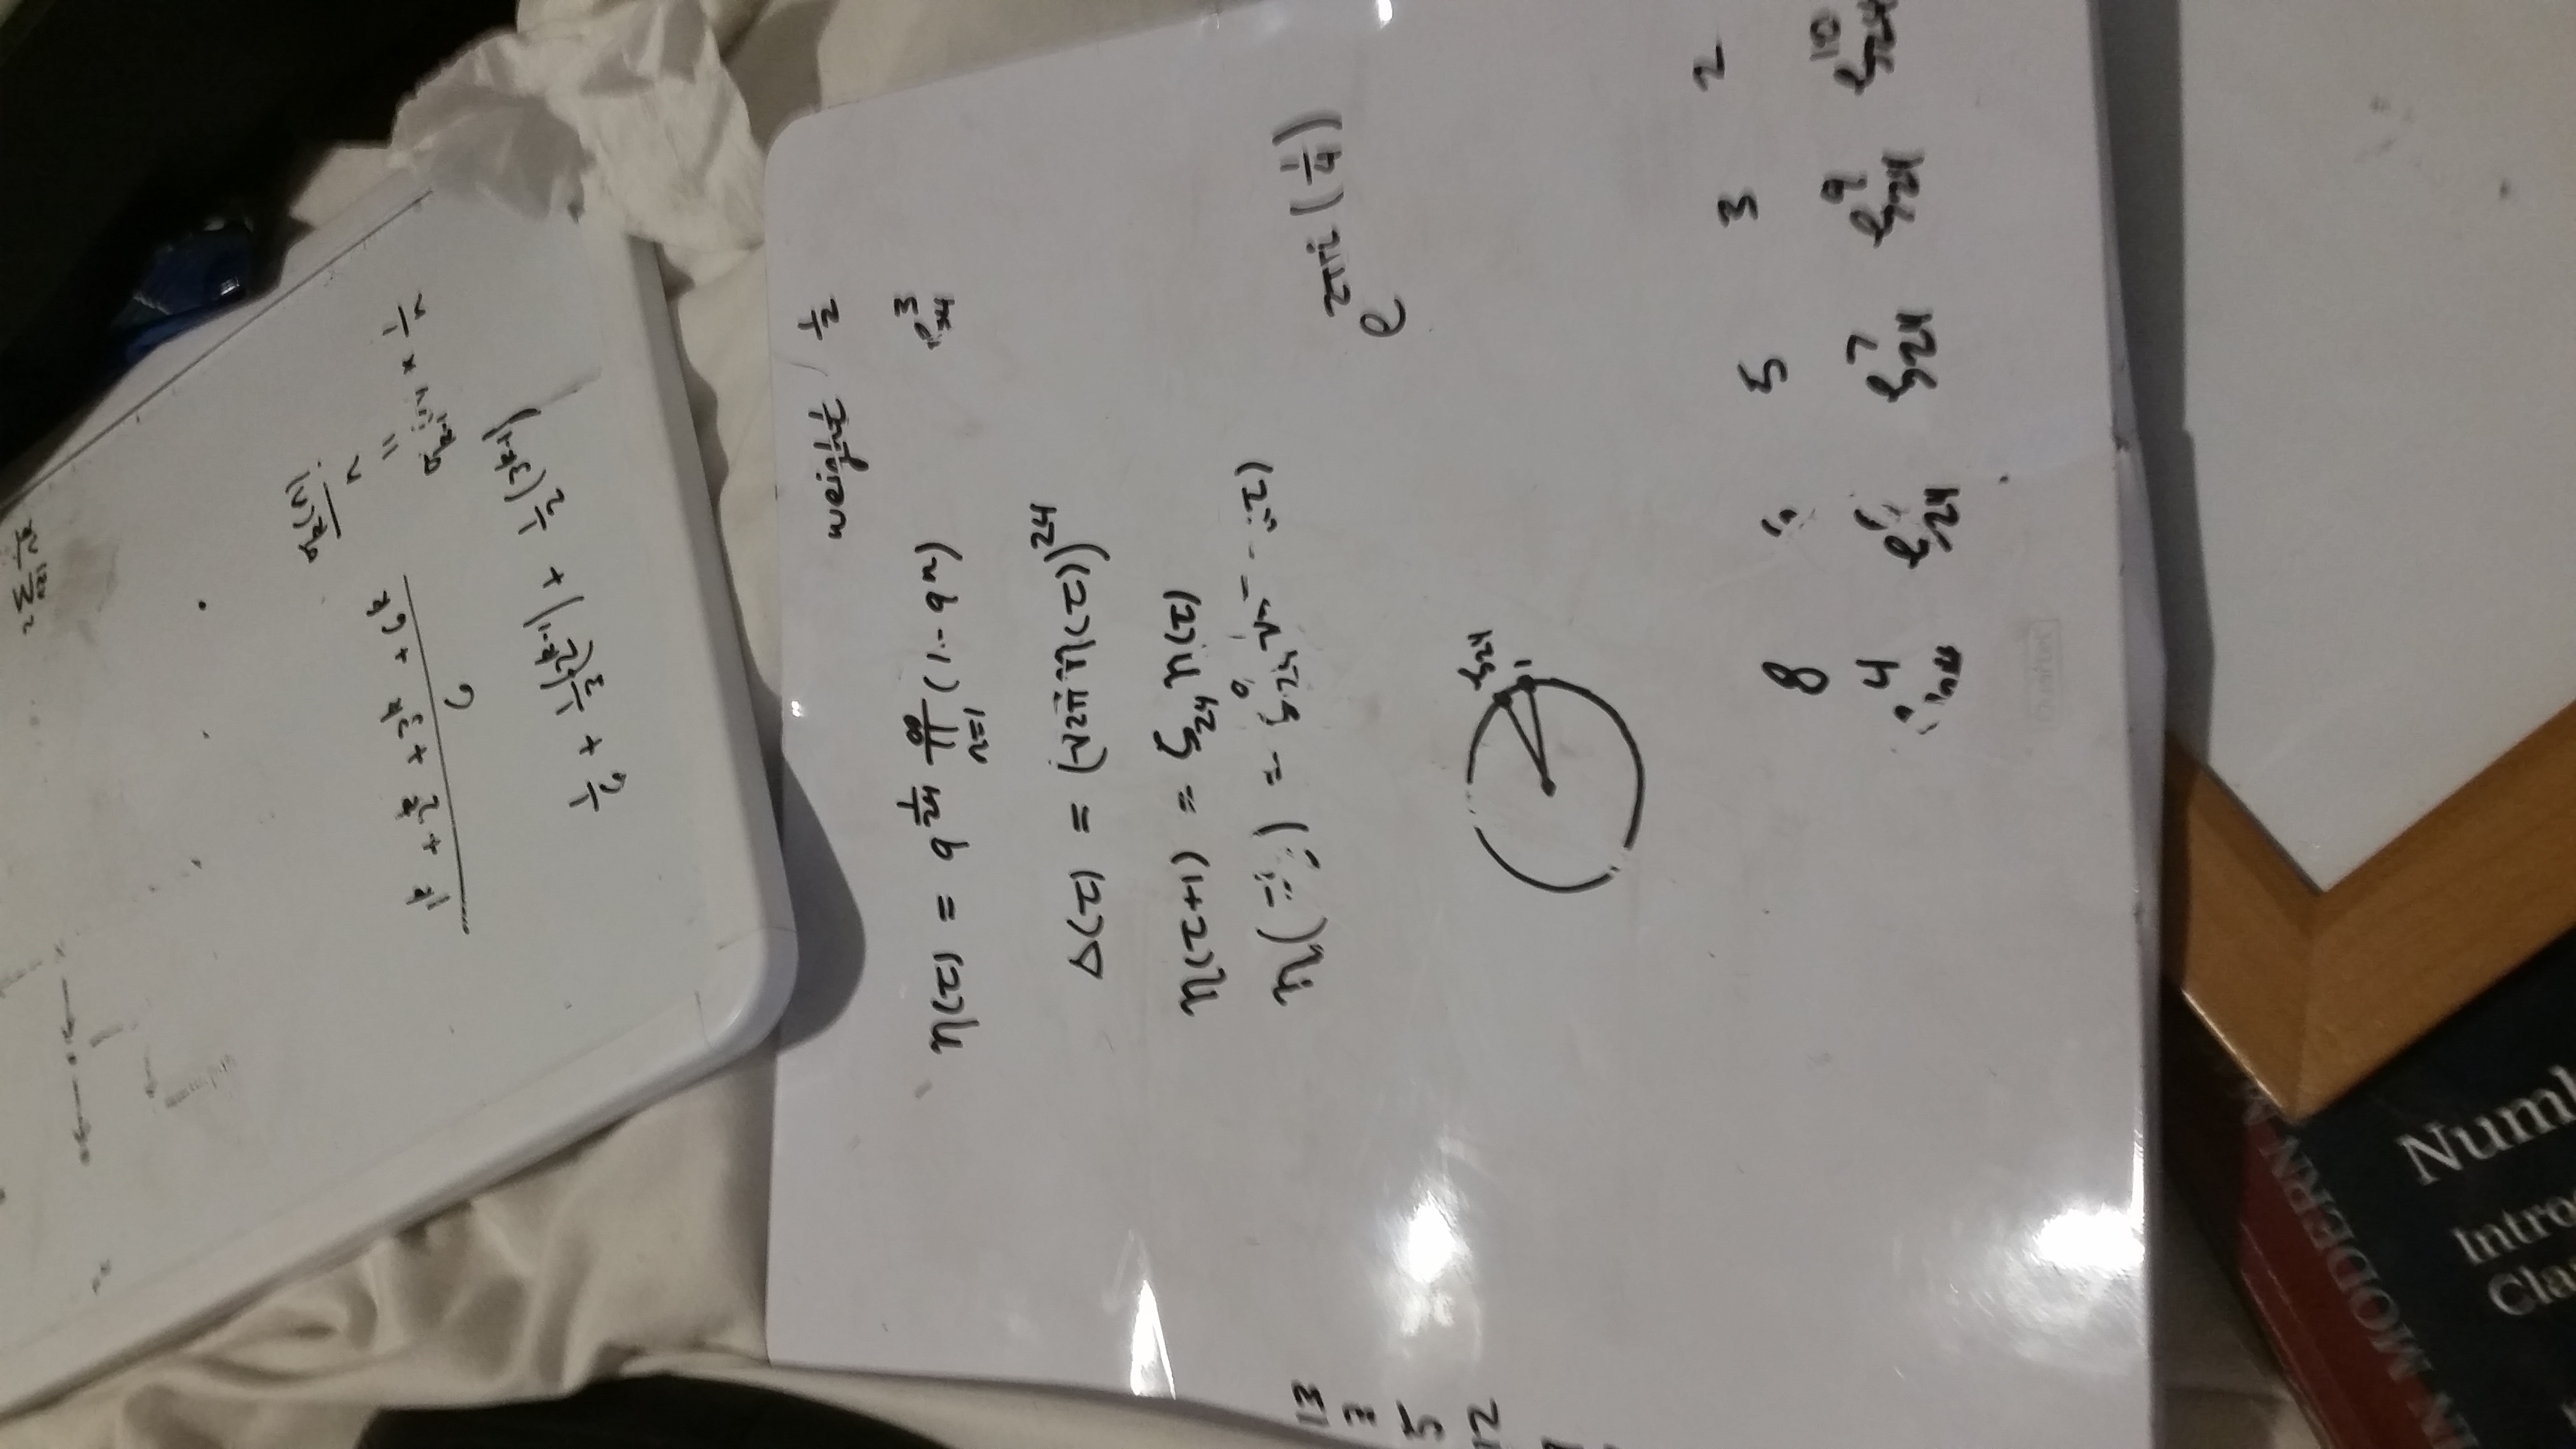 2 Σ 1/n^k
σ_k(n)/n
=
(1^k + 2^k + 3^k + 6^k)/6
σ_{k-1} * 1/n
1/6 + 1/3(2^{k-1}) + 1/2(3^{k-1})
weight 1/2
η(τ) = q^{1/24} ∏_{n=1}^{∞} (1-q^n)
3
24
Δ(τ) = (√2π η(τ))^{24}
η(τ+1) = ζ_{24} η(τ)
η( ) = ζ_{24}^0 τ)
13
5
12
e^{2πi(1/4)}
ζ_{24}
1
8 5 3 2
4 ζ_{24} ζ_{24}^7 ζ_{24}^9 ζ_{24}^{10}
IN MODERN MA
Numb
Introd
Clas